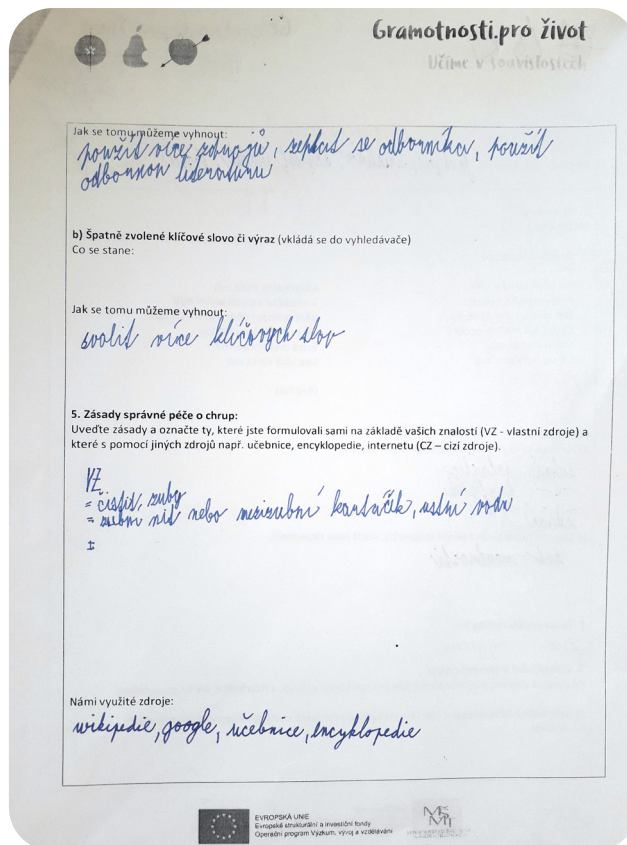 Gramotnosti.pro život
Učíme v souvislostech
Jak se tomu můžeme vyhnout:
použít více zdrojů, zeptat se odborníka, použít
odbornou literaturu
b) Špatně zvolené klíčové slovo či výraz (vkládá se do vyhledávače)
Co se stane:
Jak se tomu můžeme vyhnout:
zvolit více klíčových slov
5. Zásady správné péče o chrup:
Uveďte zásady a označte ty, které jste formulovali sami na základě vašich znalostí (VZ - vlastní zdroje) a
které s pomocí jiných zdrojů např. učebnice, encyklopedie, internetu (CZ – cizí zdroje).
VZ
= čistit zuby
= zubní nit nebo mezizubní kartáček, ustní voda
Námi využité zdroje:
wikipedie, google, učebnice, encyklopedie
EVROPSKÁ UNIE
Evropské strukturální a investiční fondy
Operační program Výzkum, vývoj a vzdělávání